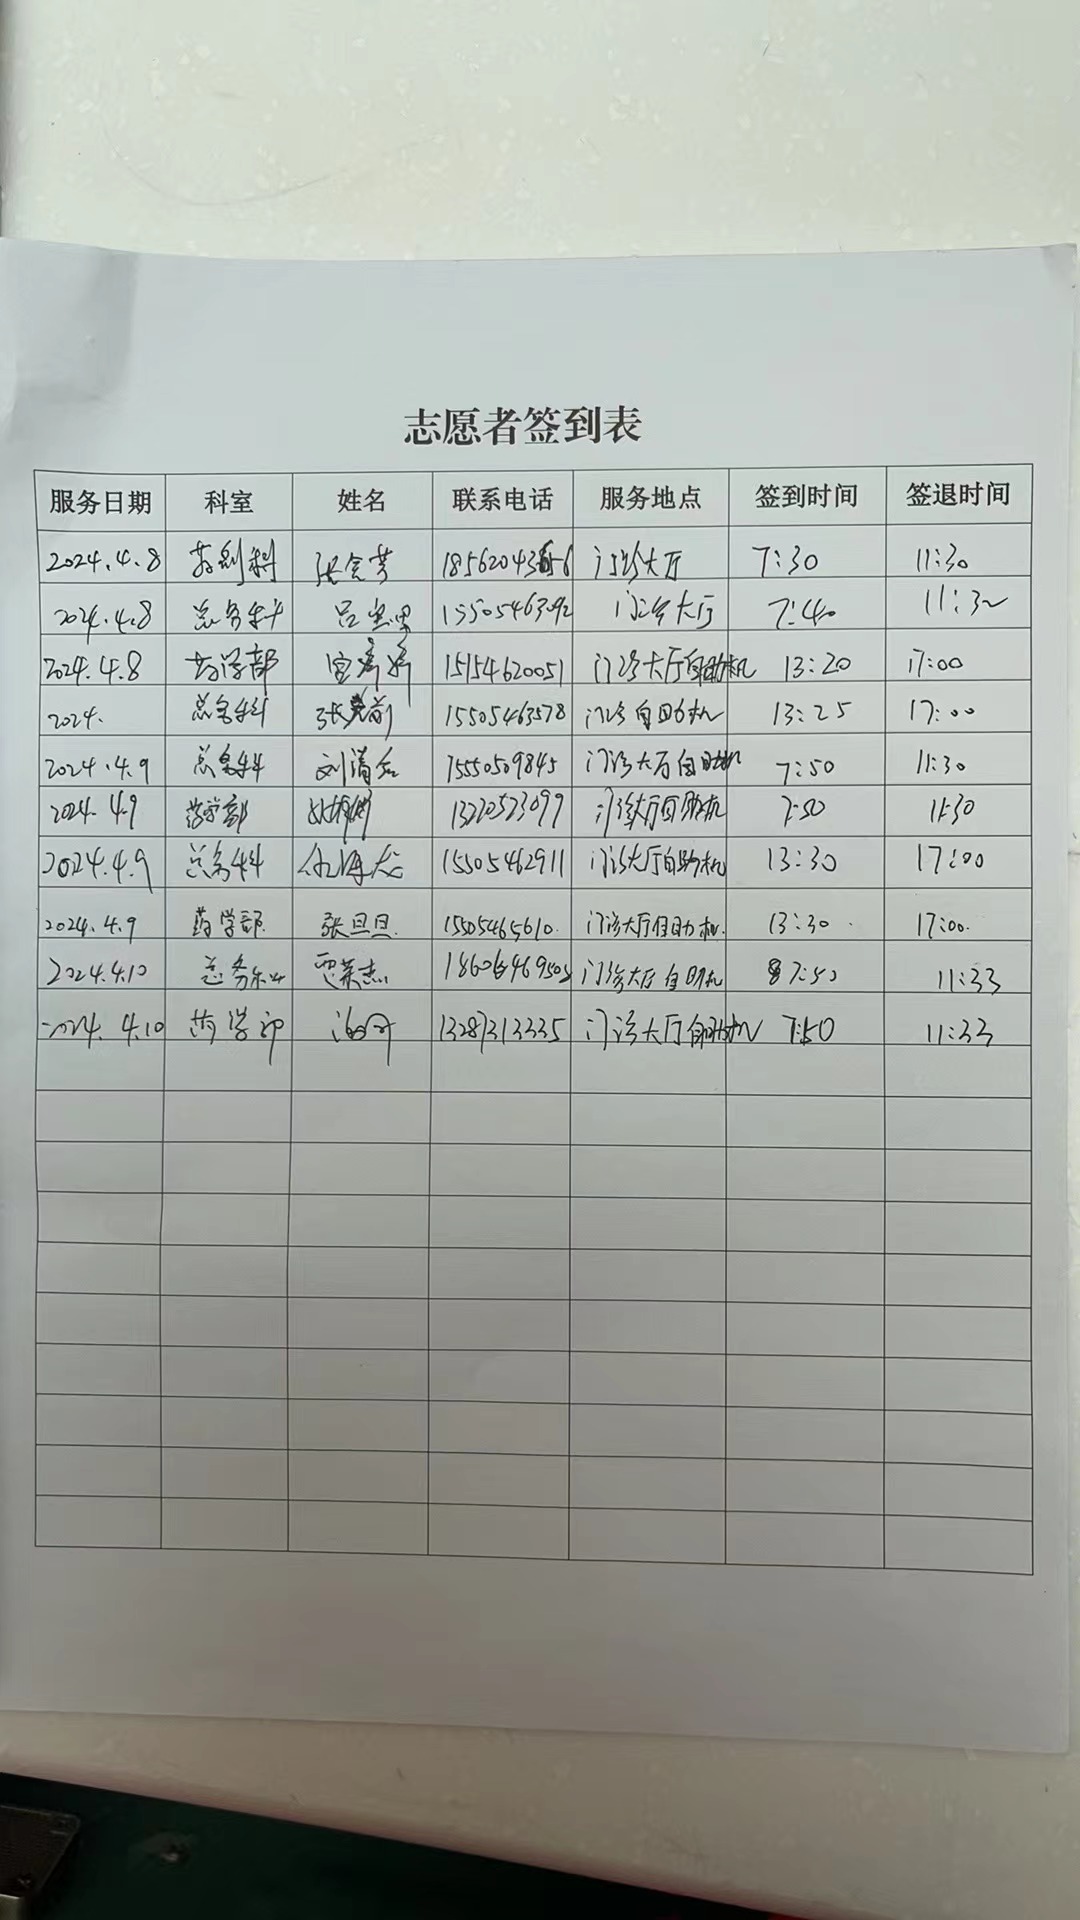 志愿者签到表
服务日期 科室 姓名 联系电话 服务地点 签到时间 签退时间
2024.4.8 药剂科 门诊大厅 7:30 11:30
2024.4.8 总务科 15505463092 门诊大厅 7:40 11:30
2024.4.8 药学部 宫婷婷 15154620051 门诊大厅自助机 13:20 17:00
2024. 总务科 15505463578 门诊自助机 13:25 17:00
2024.4.9 总务科 15550509845 门诊大厅自助机 7:50 11:30
2024.4.9 药学部 13220523099 门诊大厅自助机 7:50 11:30
2024.4.9 总务科 15505462911 门诊大厅自助机 13:30 17:00
2024.4.9 药学部 张旦旦 15505465610 门诊大厅自助机 13:30 17:00
2024.4.10 总务科 贾荣杰 门诊大厅自助机 7:50 11:33
2024.4.10 药学部 13287313335 门诊大厅自助机 7:50 11:33